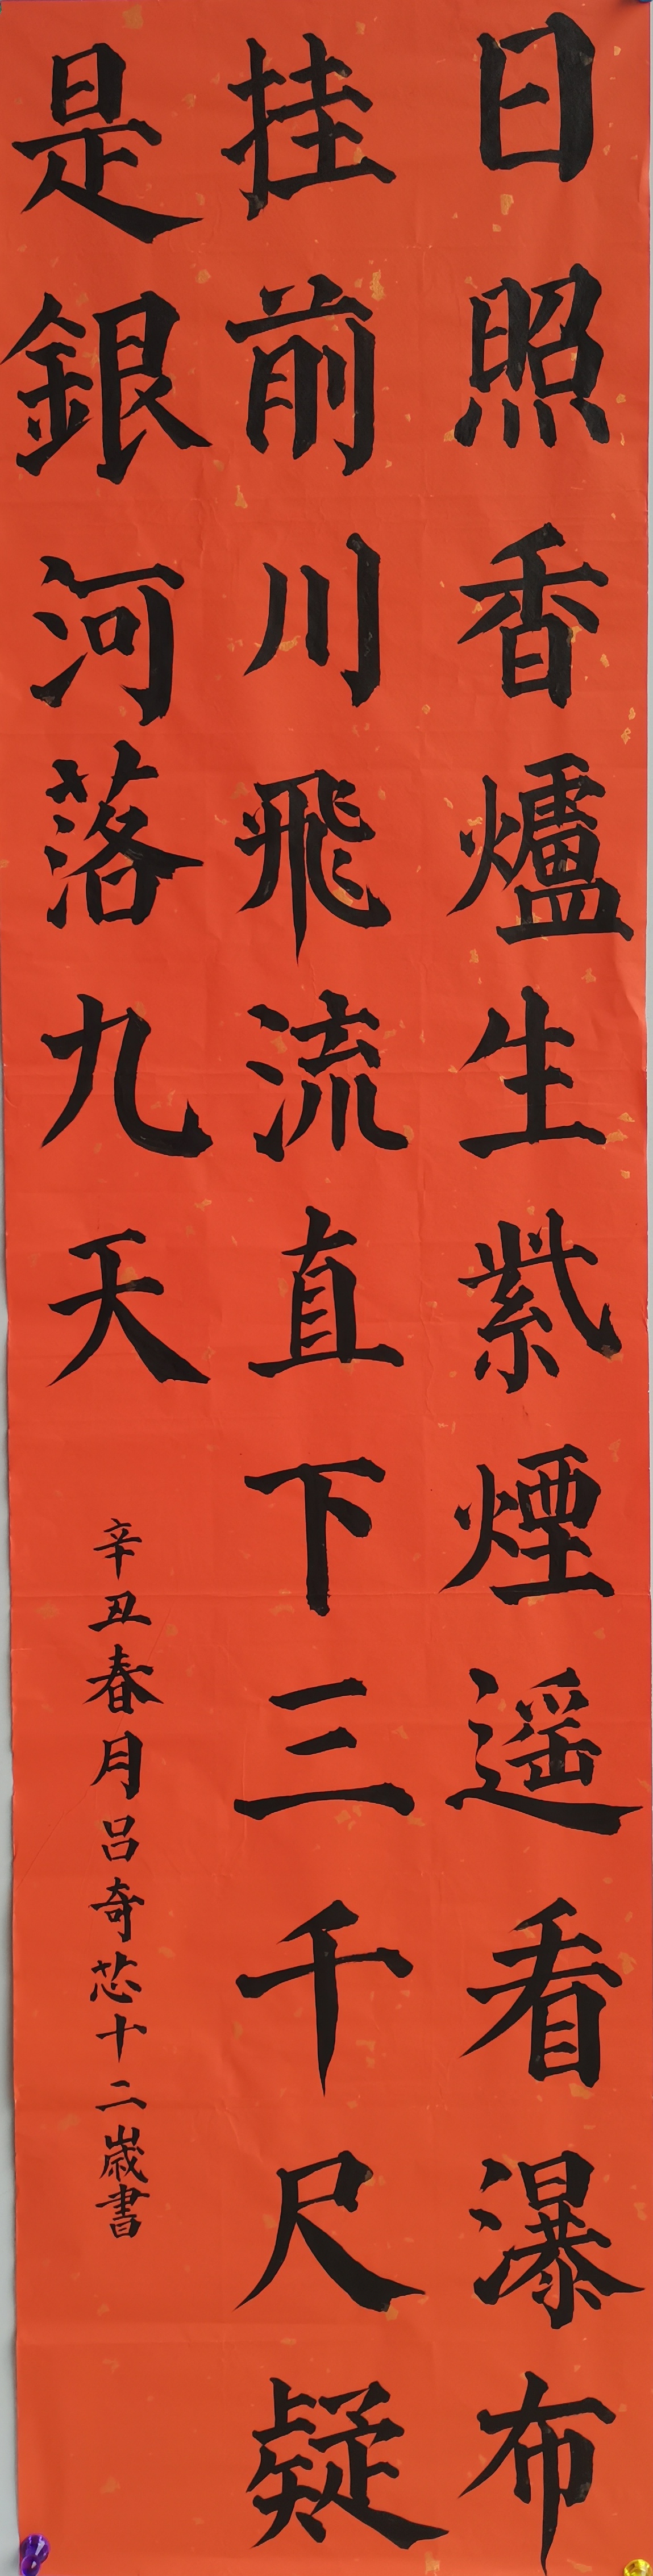 日照香爐生紫煙遥看瀑布
挂前川飛流直下三千尺疑
是銀河落九天
辛丑春月吕奇芯十二歲書